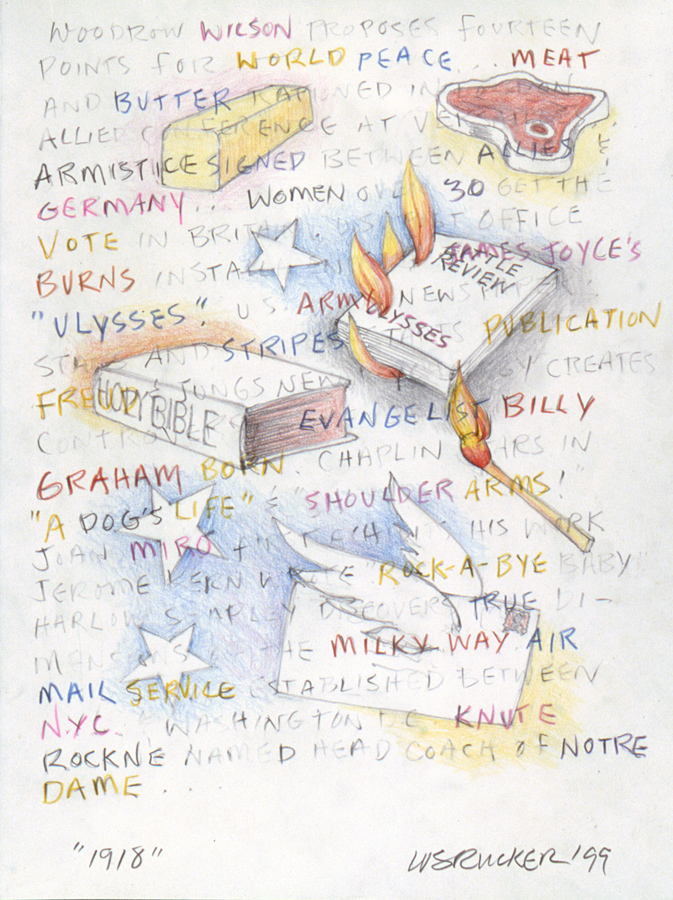 WOODROW WILSON PROPOSES FOURTEEN
POINTS FOR WORLD PEACE... MEAT
AND BUTTER RATIONED IN
ALLIED CONFERENCE AT
ARMISTICE SIGNED BETWEEN ALLIES &
GERMANY... WOMEN OVER '30 GET THE
VOTE IN BRITAIN. U.S. POST OFFICE
BURNS JAMES JOYCE'S
"ULYSSES". U.S. ARMY NEWSPAPER
STARS AND STRIPES PUBLICATION
FREUD & JUNGS NEW CREATES
EVANGELIST BILLY
GRAHAM BORN. CHAPLIN STARS IN
"A DOG'S LIFE" & "SHOULDER ARMS!"
JOAN MIRO HIS WORK
JEROME KERN "ROCK-A-BYE BABY"
HARLOW SHAPLEY DISCOVERS TRUE DI-
MANSIONS OF THE MILKY WAY. AIR
MAIL SERVICE ESTABLISHED BETWEEN
N.Y.C. WASHINGTON D.C. KNUTE
ROCKNE NAMED HEAD COACH OF NOTRE
DAME...
LITTLE
REVIEW
ULYSSES
HOLY BIBLE
"1918"
WSRUCKER '99